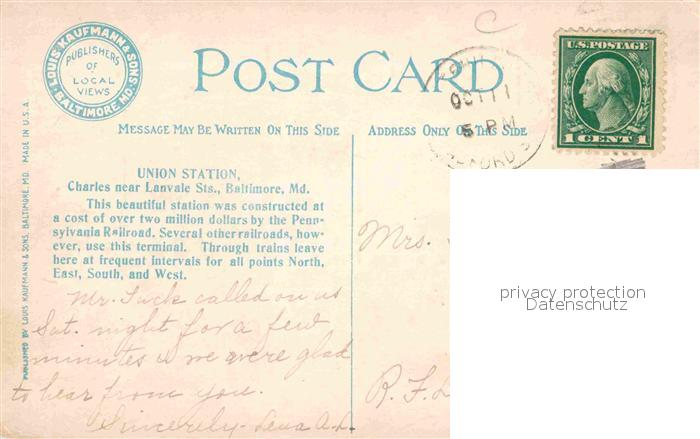 LOUIS KAUFMANN & SONS
BALTIMORE, MD.
PUBLISHERS
OF
LOCAL
VIEWS
POST CARD
MESSAGE MAY BE WRITTEN ON THIS SIDE
ADDRESS ONLY ON THIS SIDE
OCT 11
5 PM
U.S. POSTAGE
1 CENT 1
PUBLISHED BY LOUIS KAUFMANN & SONS, BALTIMORE, MD. MADE IN U.S.A.
UNION STATION,
Charles near Lanvale Sts., Baltimore, Md.
This beautiful station was constructed at
a cost of over two million dollars by the Penn-
sylvania Railroad. Several other railroads, how-
ever, use this terminal. Through trains leave
here at frequent intervals for all points North,
East, South, and West.
Mr. called on us
Sat. night for a few
minutes & we were glad
to hear from you.
Sincerely - Lena A.L.
Mrs.
R.F.D.
privacy protection
Datenschutz